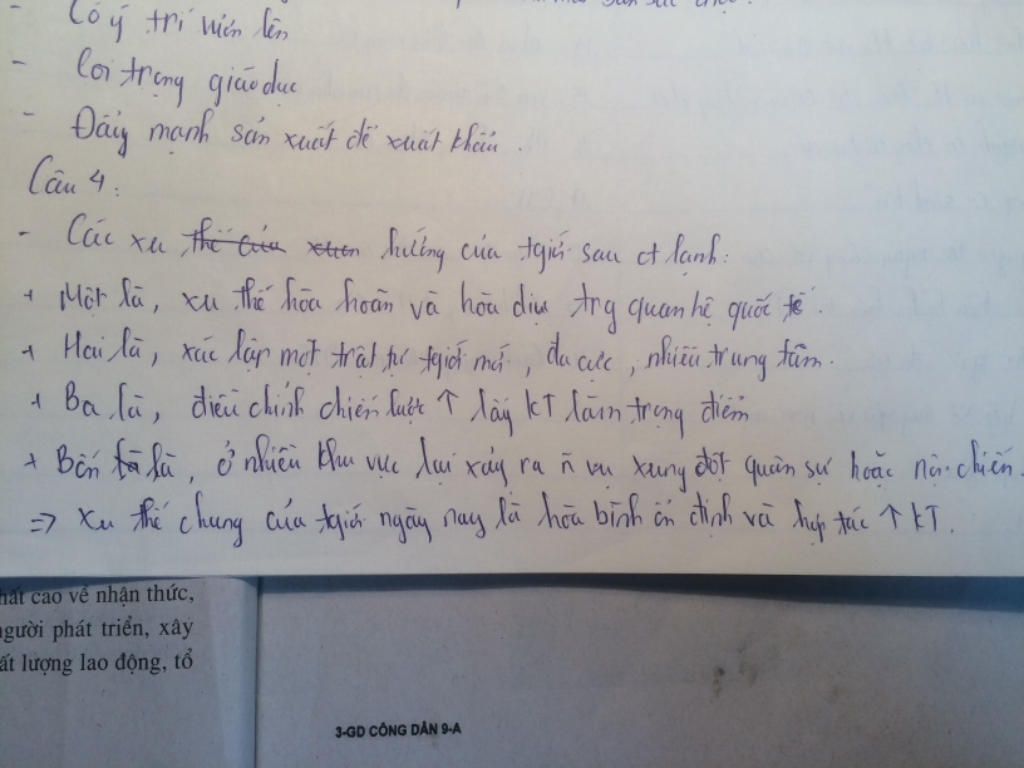 - Có ý trí vươn lên
- Coi trọng giáo dục
- Đẩy mạnh sản xuất để xuất khẩu.
Câu 4:
- Các xu thế của hướng của tgiới sau ct lạnh:
+ Một là, xu thế hòa hoãn và hòa dịu trg quan hệ quốc tế.
+ Hai là, xác lập một trật tự tgiới mới, đa cực, nhiều trung tâm.
+ Ba là, điều chỉnh chiến lược ↑ lấy KT làm trọng điểm
+ Bốn là, ở nhiều khu vực lại xảy ra ñ vụ xung đột quân sự hoặc nội chiến.
=> Xu thế chung của tgiới ngày nay là hòa bình ổn định và hợp tác ↑ KT.
hất cao về nhận thức,
gười phát triển, xây
ất lượng lao động, tổ
3-GD CÔNG DÂN 9-A